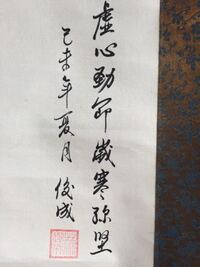 虚心勁節歲寒弥堅
己未年夏月 俊成